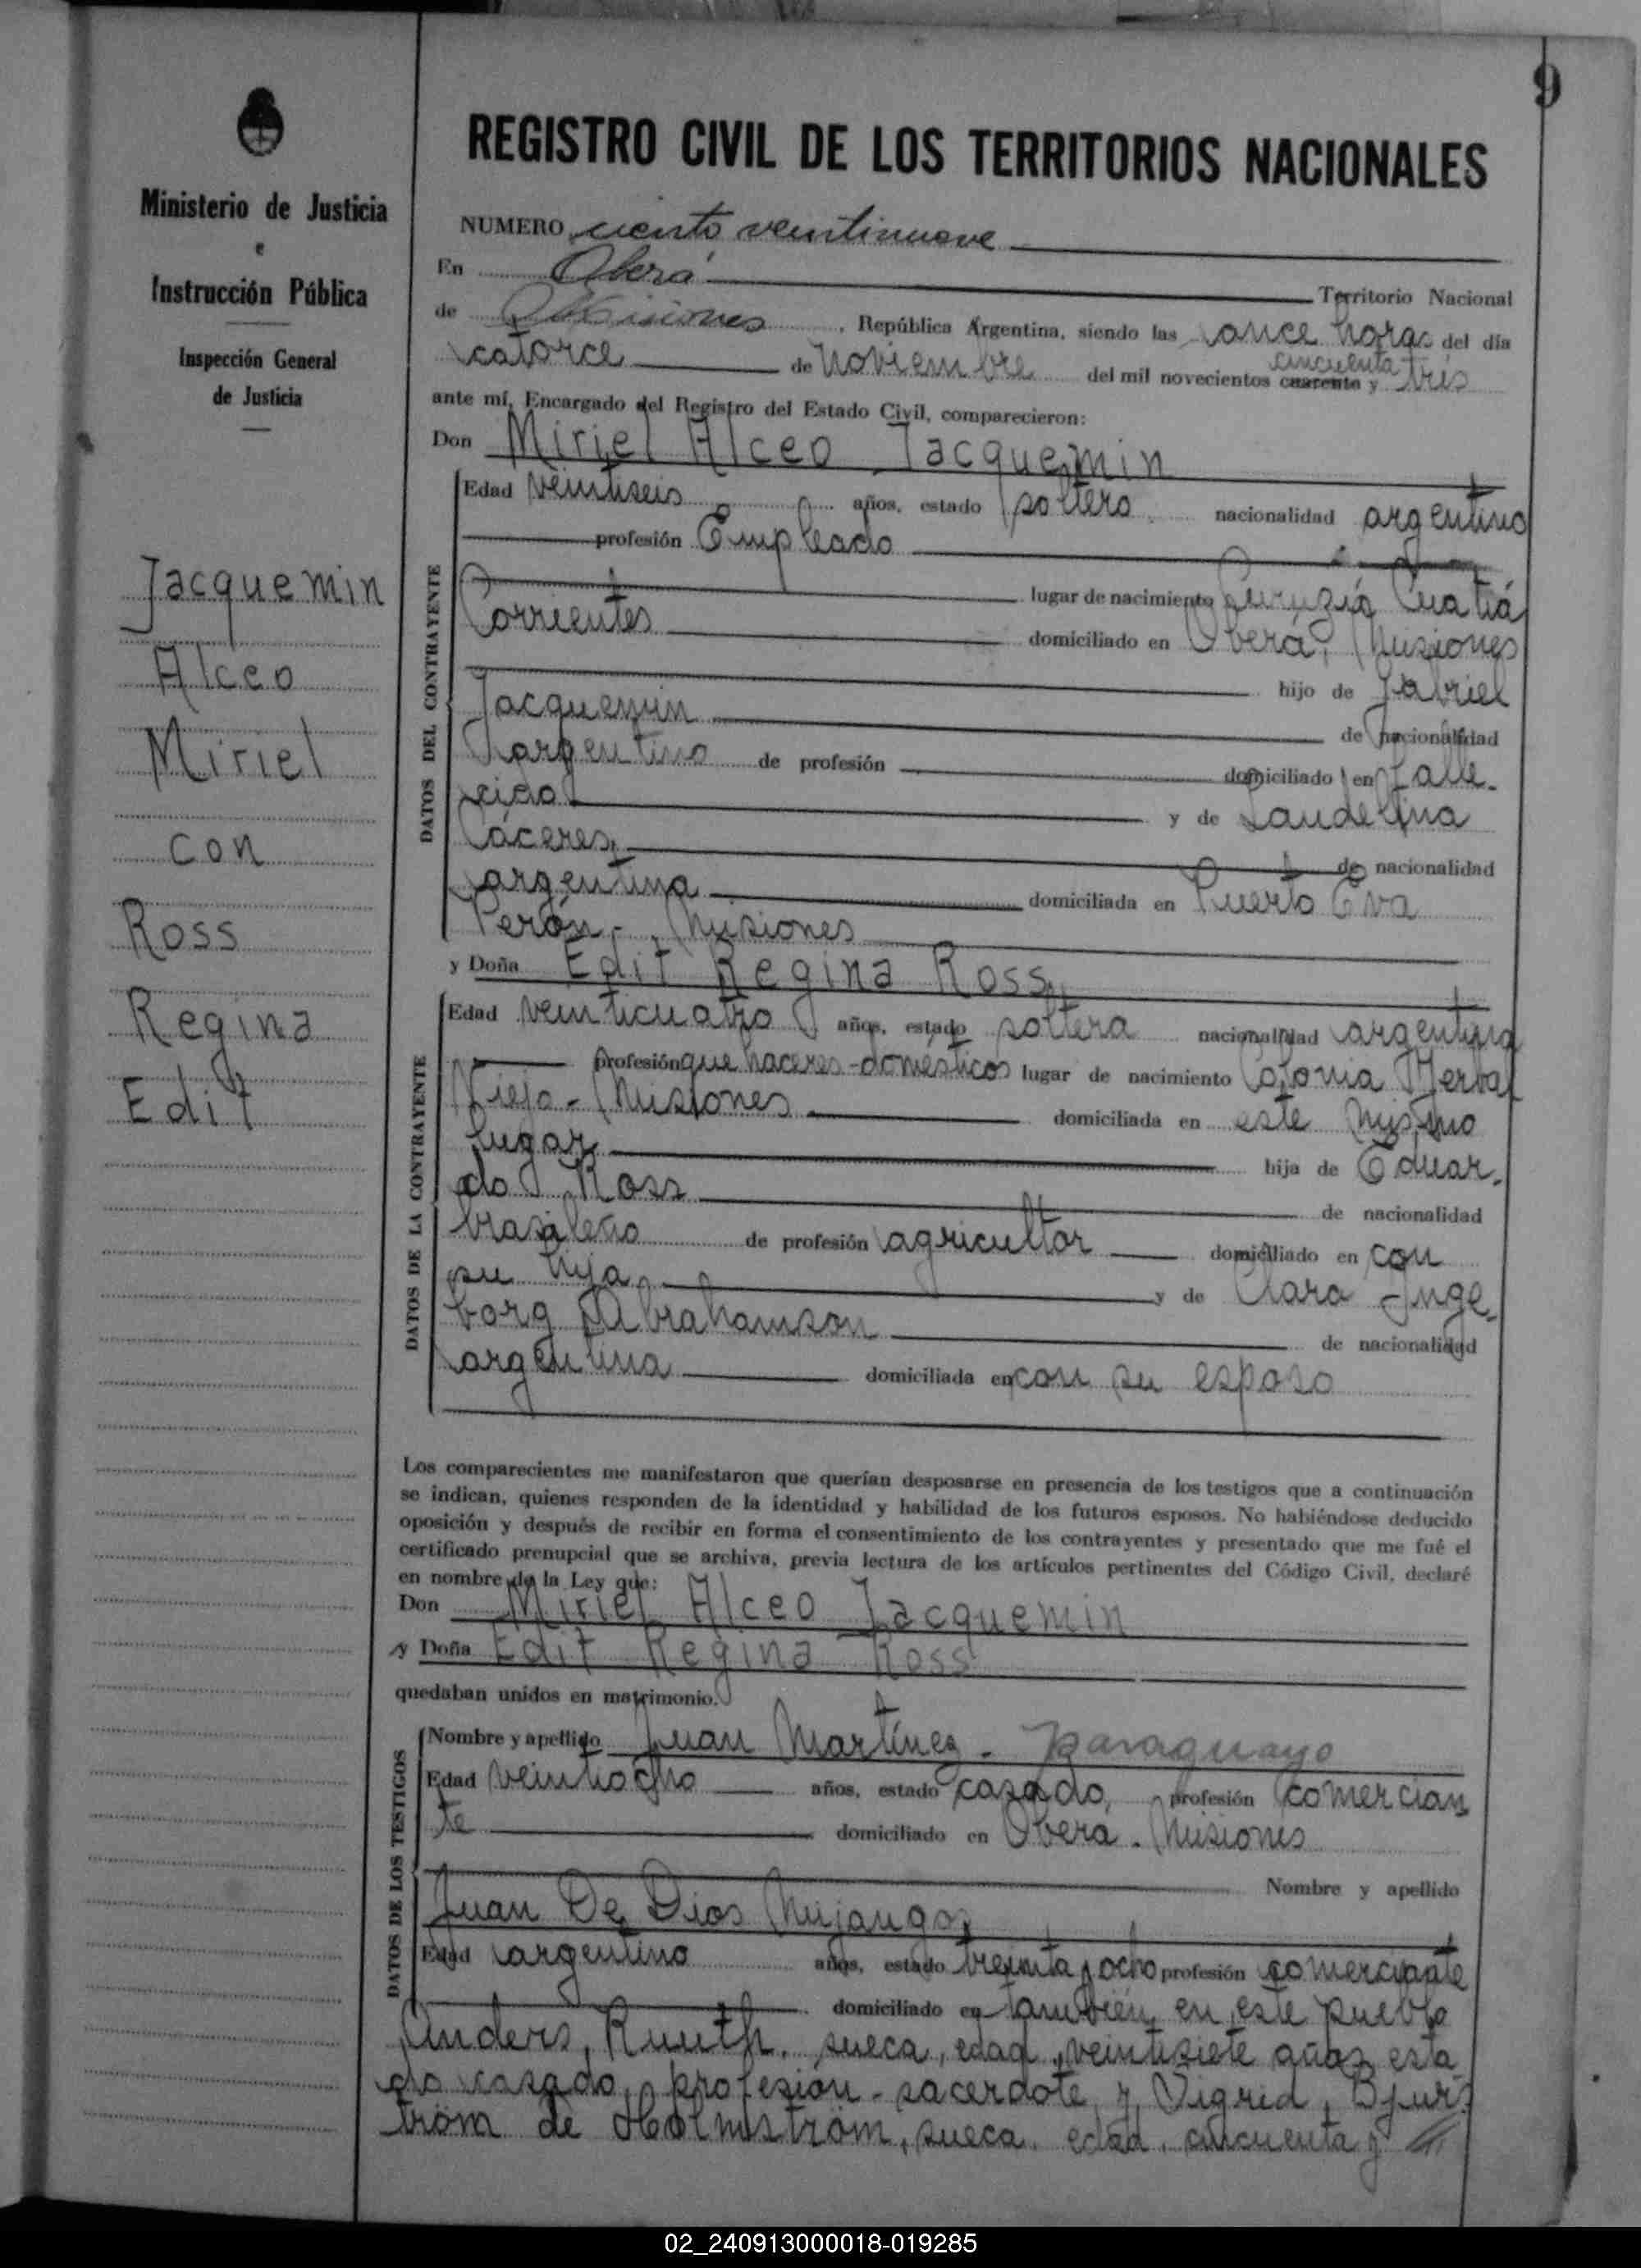 9
Ministerio de Justicia
e
Instrucción Pública
Inspección General
de Justicia
Jacquemin
Alceo
Miriel
con
Ross
Regina
Edit
REGISTRO CIVIL DE LOS TERRITORIOS NACIONALES
NUMERO ciento veintinueve
En Oberá Territorio Nacional
de Misiones, República Argentina, siendo las once horas del día
cincuenta
catorce de Noviembre del mil novecientos cuarenta y tres
ante mí, Encargado del Registro del Estado Civil, comparecieron:
Don Miriel Alceo Jacquemin
DATOS DEL CONTRAYENTE
Edad veintiseis años, estado soltero, nacionalidad argentino
profesión Empleado
lugar de nacimiento Curuzú Cuatiá
Corrientes domiciliado en Oberá, Misiones
hijo de Gabriel
Jacquemin de nacionalidad
argentino de profesión domiciliado en falle-
cido y de Laudelina
Cáceres, de nacionalidad
argentina domiciliada en Puerto Eva
Perón, Misiones
y Doña Edit Regina Ross,
DATOS DE LA CONTRAYENTE
Edad veinticuatro años, estado soltera nacionalidad argentina
profesión que haceres-domésticos lugar de nacimiento Colonia Yerbal
Viejo - Misiones domiciliada en este mismo
lugar hija de Eduar-
do Ross de nacionalidad
brasileño de profesión agricultor domiciliado en con
su hija, y de Clara Inge-
borg Abrahamson de nacionalidad
argentina domiciliada en con su esposo
Los comparecientes me manifestaron que querían desposarse en presencia de los testigos que a continuación
se indican, quienes responden de la identidad y habilidad de los futuros esposos. No habiéndose deducido
oposición y después de recibir en forma el consentimiento de los contrayentes y presentado que me fué el
certificado prenupcial que se archiva, previa lectura de los artículos pertinentes del Código Civil, declaré
en nombre de la Ley que:
Don Miriel Alceo Jacquemin
y Doña Edit Regina Ross
quedaban unidos en matrimonio.
DATOS DE LOS TESTIGOS
Nombre y apellido Juan Martínez - paraguayo
Edad veintiocho años, estado casado, profesión comercian
te domiciliado en Oberá - Misiones
Nombre y apellido
Juan De Dios Mijangos,
Edad argentino años, estado treinta y ocho profesión comerciante
domiciliado en también en este pueblo
Anders, Ruuth, sueca, edad, veintisiete años esta
do casado, profesión - sacerdote y Sigrid, Bjurs
tröm de Holmström, sueca, edad, cincuenta y
02_240913000018-019285